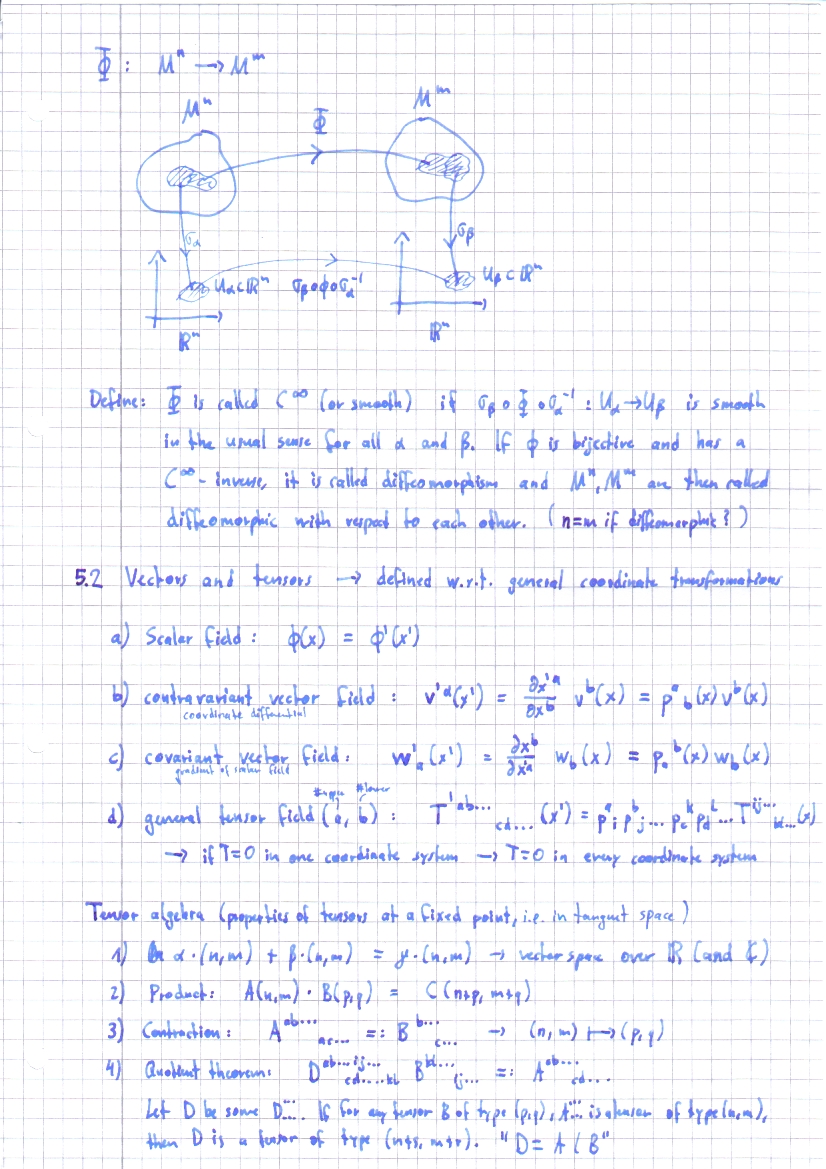 Φ : Mⁿ → Mᵐ
Mⁿ
Φ
Mᵐ
σ_α
σ_β
U_α ⊂ ℝⁿ
σ_β∘ϕ∘σ_α⁻¹
U_β ⊂ ℝⁿ
ℝⁿ
ℝⁿ
Define: Φ is called C^∞ (or smooth) if σ_β ∘ Φ ∘ σ_α⁻¹ : U_α → U_β is smooth
in the usual sense for all α and β. If ϕ is bijective and has a
C^∞ - inverse, it is called diffeomorphism and Mⁿ, Mᵐ are then called
diffeomorphic with respect to each other. (n=m if diffeomorphic?)
5.2 Vectors and tensors → defined w.r.t. general coordinate transformations
a) Scalar field : ϕ(x) = ϕ'(x')
b) contravariant vector field : v'^a(x') = ∂x'^a/∂x^b v^b(x) = p^a_b(x) v^b(x)
coordinate differential
c) covariant vector field : w'_a(x') = ∂x^b/∂x'^a w_b(x) = p_a^b(x) w_b(x)
gradient of scalar field
#upper #lower
d) general tensor field (a, b) : T'^{ab...}_{cd...}(x') = p^a_i p^b_j ... p_c^k p_d^l ... T^{ij...}_{kl...}(x)
→ if T=0 in one coordinate system → T=0 in every coordinate system
Tensor algebra (properties of tensors at a fixed point, i.e. in tangent space)
1) α·(n,m) + β·(n,m) = γ·(n,m) → vector space over ℝ (and ℂ)
2) Product: A(n,m) · B(p,q) = C(n+p, m+q)
3) Contraction : A^{ab...}_{ac...} =: B^{b...}_{c...} → (n,m) ↦ (p,q)
4) Quotient theorem: D^{ab...ij...}_{cd...kl} B^{kl...}_{ij...} =: A^{ab...}_{cd...}
Let D be some D^{...}_{...}. If for any tensor B of type (p,q), A^{...}_{...} is a tensor of type (n,m),
then D is a tensor of type (n+s, m+r). "D = A / B"